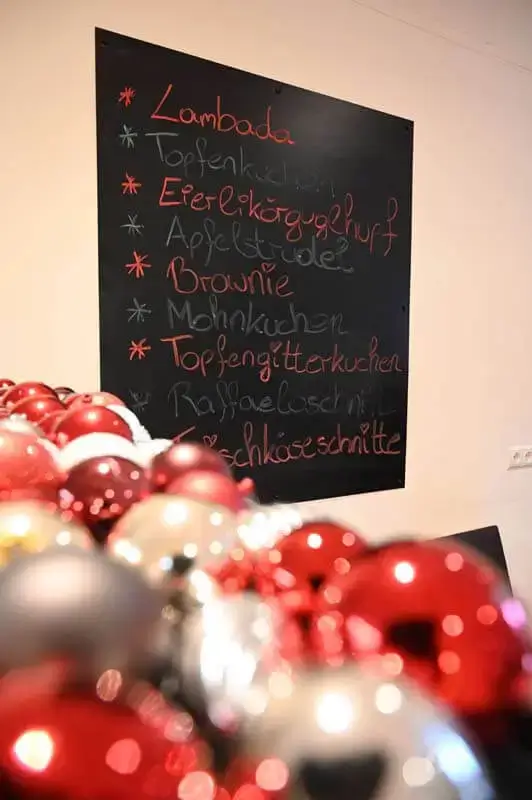 * Lambada
* Topfenkuchen
* Eierlikörguglhupf
* Apfelstrudel
* Brownie
* Mohnkuchen
* Topfengitterkuchen
* Raffaeloschnitte
Frischkäseschnitte